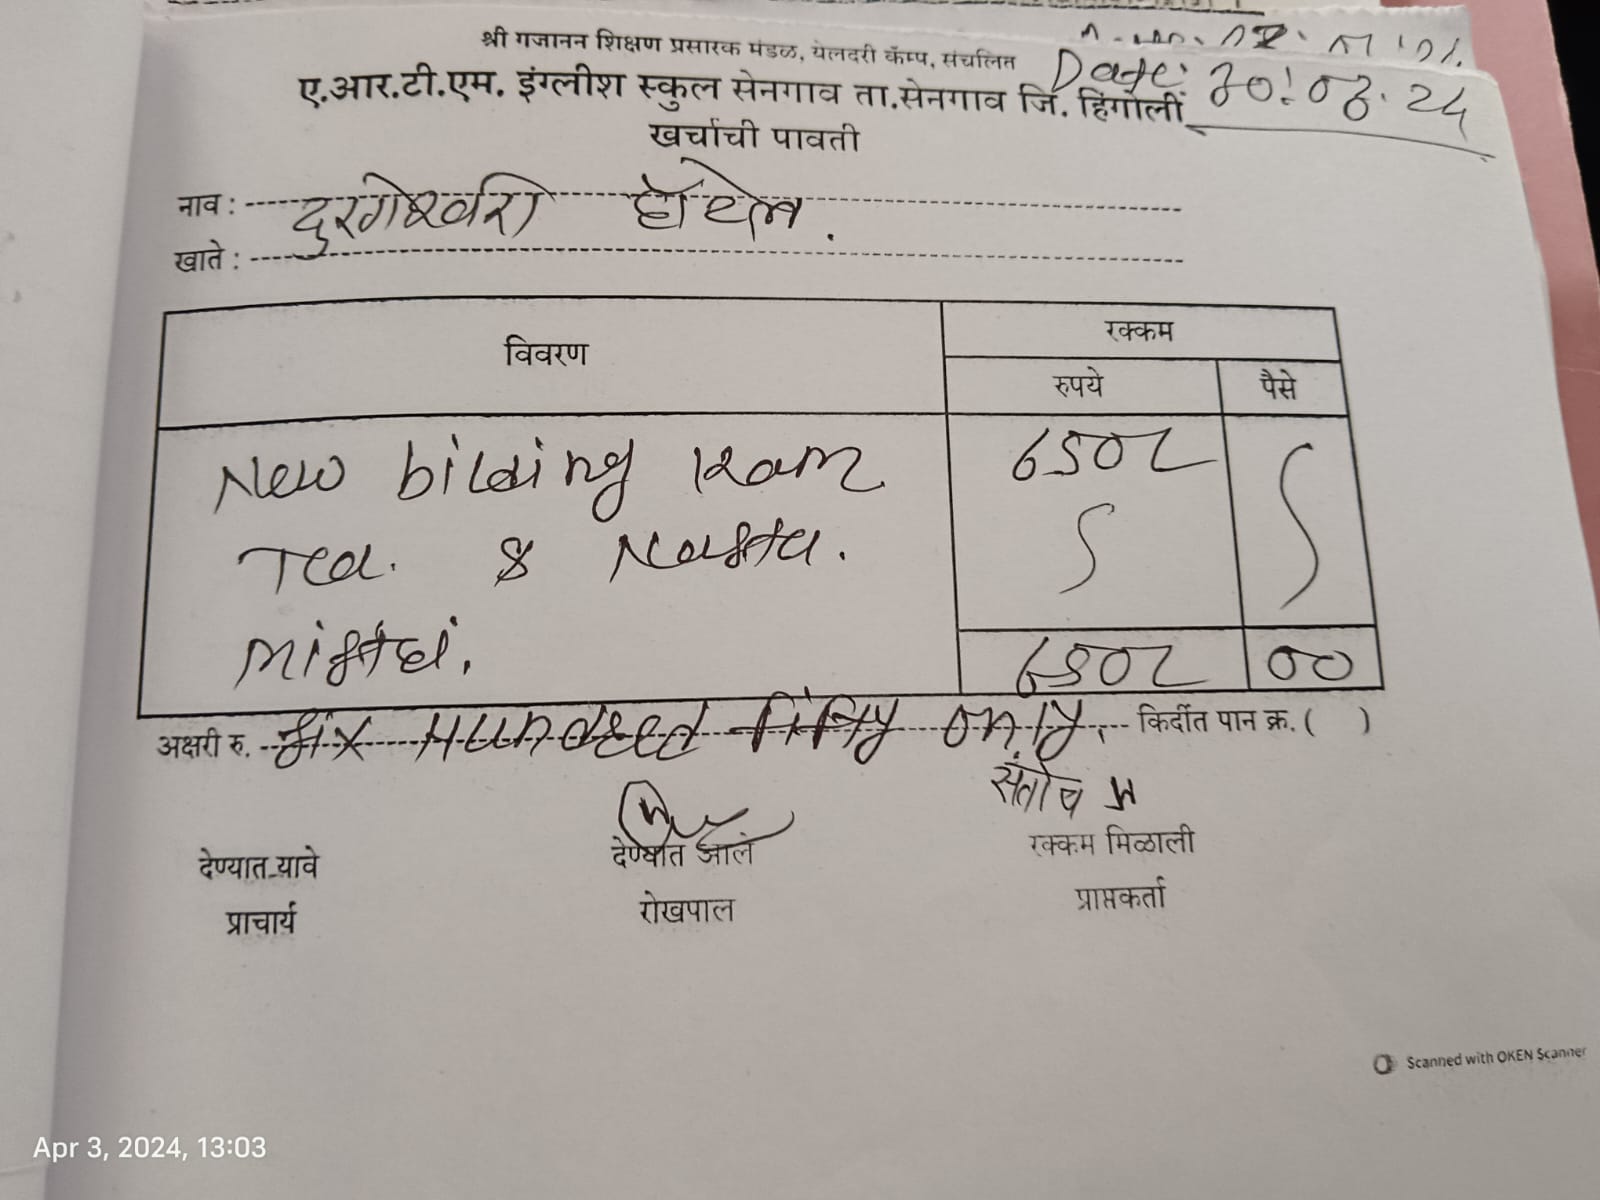 श्री गजानन शिक्षण प्रसारक मंडळ, येलदरी कॅम्प, संचलित
Date: 30.03.24
ए.आर.टी.एम. इंग्लीश स्कुल सेनगाव ता.सेनगाव जि. हिंगोली
खर्चाची पावती
नाव : दुरगेश्वरी हॉटेल.
खाते :
विवरण
रक्कम
रुपये पैसे
New bilding kam 650/-
Tea. & Nasta.
Mistri.
650/- 00
अक्षरी रु. Six Hundred Fifty only. किर्दीत पान क्र. ( )
संतोष
देण्यात यावे देण्यात आले रक्कम मिळाली
प्राचार्य रोखपाल प्राप्तकर्ता
Scanned with OKEN Scanner
Apr 3, 2024, 13:03